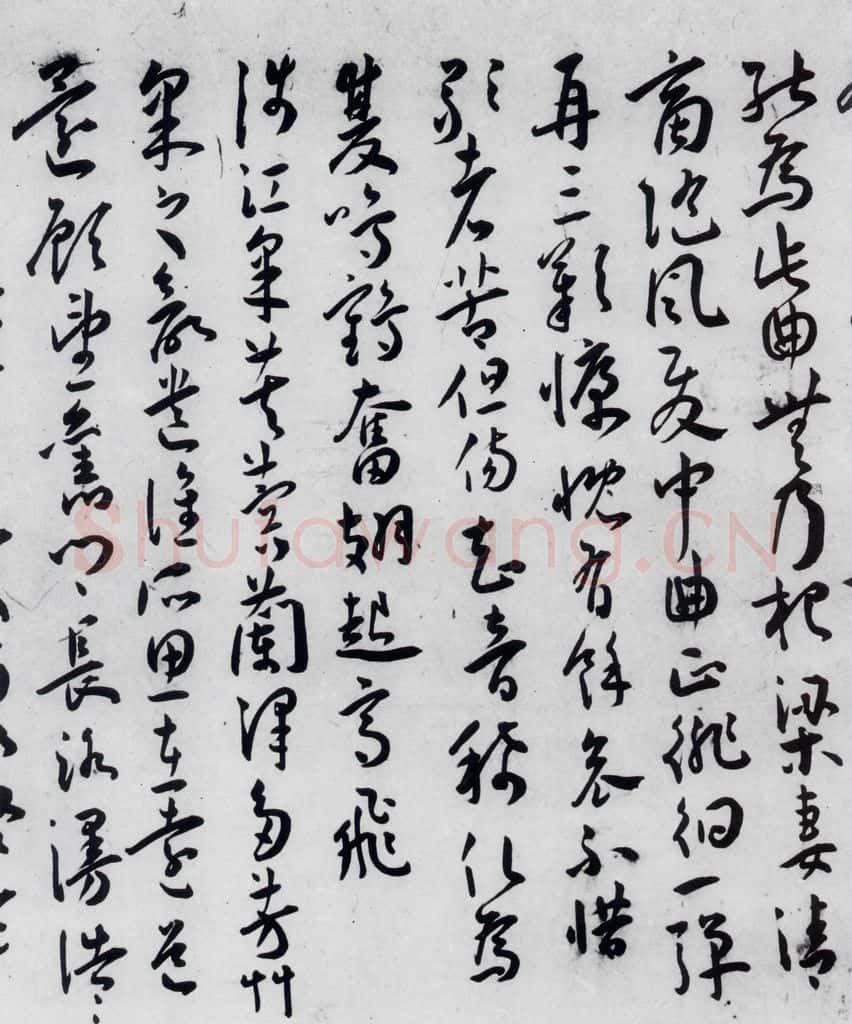 能為此曲無乃杞梁妻清
商隨風發中曲正徘徊一彈
再三歎慷慨有餘哀不惜
歌者苦但傷知音稀化為
雙鳴鶴奮翅起高飛
涉江采芙蓉蘭澤多芳艸
采之欲遺誰所思在遠道
還顧望舊鄉長路漫浩〻
Shufawang.CN